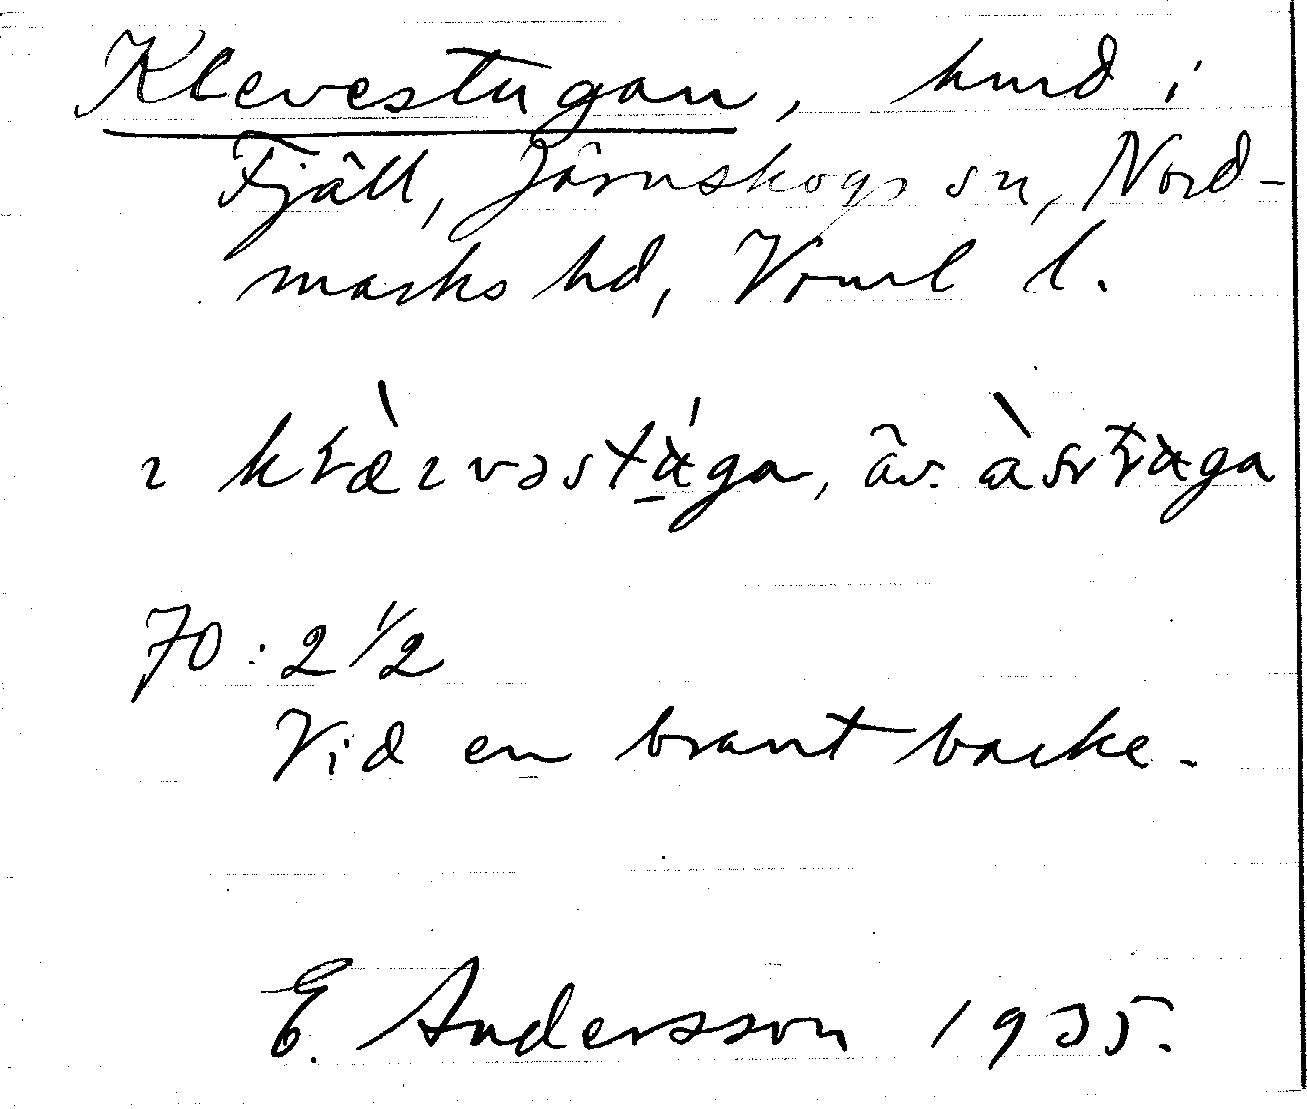 Klevestugan, hmd i
Fjäll, Järnskogs sn, Nord-
marks hd, Vrml l.
äv.
70 : 2 1/2
Vid en brant backe.
E. Andersson 1935.